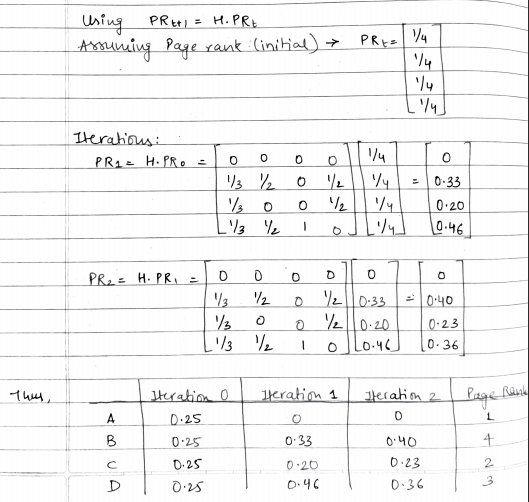 Using PRt+1 = H.PRt
Assuming Page rank (initial) → PRt = [1/4
1/4
1/4
1/4]
Iterations:
PR1 = H.PR0 = [0 0 0 0] [1/4] = [0]
[1/3 1/2 0 1/2] [1/4] [0.33]
[1/3 0 0 1/2] [1/4] [0.20]
[1/3 1/2 1 0] [1/4] [0.46]
PR2 = H.PR1 = [0 0 0 0] [0] = [0]
[1/3 1/2 0 1/2] [0.33] [0.40]
[1/3 0 0 1/2] [0.20] [0.23]
[1/3 1/2 1 0] [0.46] [0.36]
Thus, Iteration 0 Iteration 1 Iteration 2 Page Rank
A 0.25 0 0 1
B 0.25 0.33 0.40 4
C 0.25 0.20 0.23 2
D 0.25 0.46 0.36 3